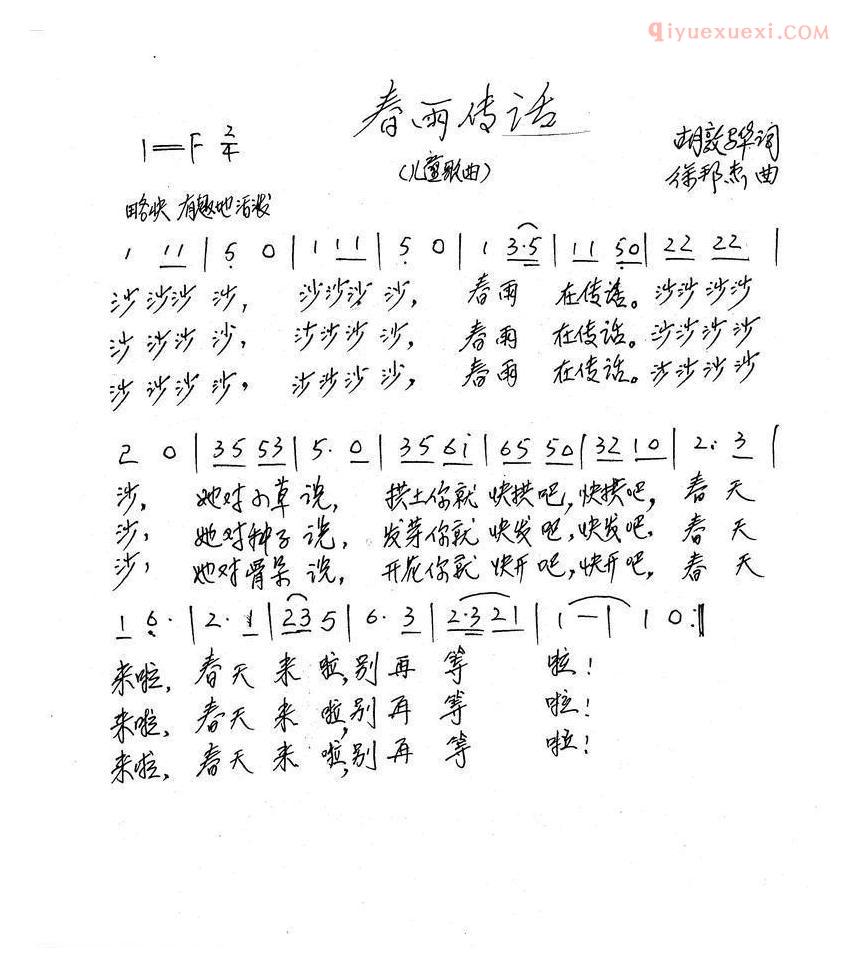 qiyuexuexi.COM
春雨传话
1=F 2/4
(儿童歌曲)
胡敦华词
徐邦杰曲
略快 有趣地活泼
1 11 | 5 0 | 1 11 | 5 0 | 1 3·5 | 11 50 | 22 22 |
沙沙沙沙, 沙沙沙沙, 春雨 在传话。沙沙沙沙
沙沙沙沙, 沙沙沙沙, 春雨 在传话。沙沙沙沙
沙沙沙沙, 沙沙沙沙, 春雨 在传话。沙沙沙沙
2 0 | 35 53 | 5· 0 | 35 6i | 65 50 | 32 10 | 2· 3 |
沙, 她对小草说, 拱土你就快拱吧,快拱吧, 春天
沙, 她对种子说, 发芽你就快发吧,快发吧, 春天
沙, 她对骨朵说, 开花你就快开吧,快开吧, 春天
1 6· | 2· 1 | 23 5 | 6· 3 | 2·3 21 | 1 — | 1 0 :‖
来啦, 春天来啦,别再等 啦!
来啦, 春天来啦,别再等 啦!
来啦, 春天来啦,别再等 啦!